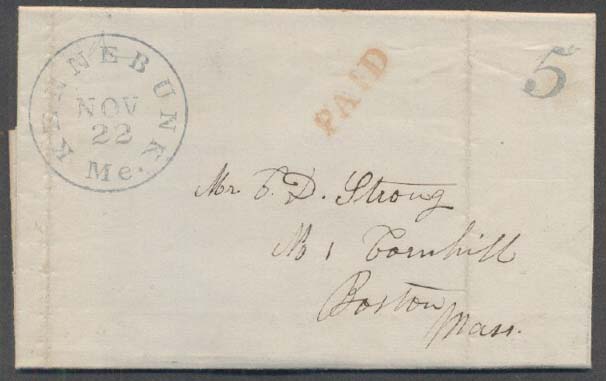 KENNEBUNK
NOV
22
Me.
PAID
5
Mr. T. D. Strong
No 1 Cornhill
Boston
Mass.